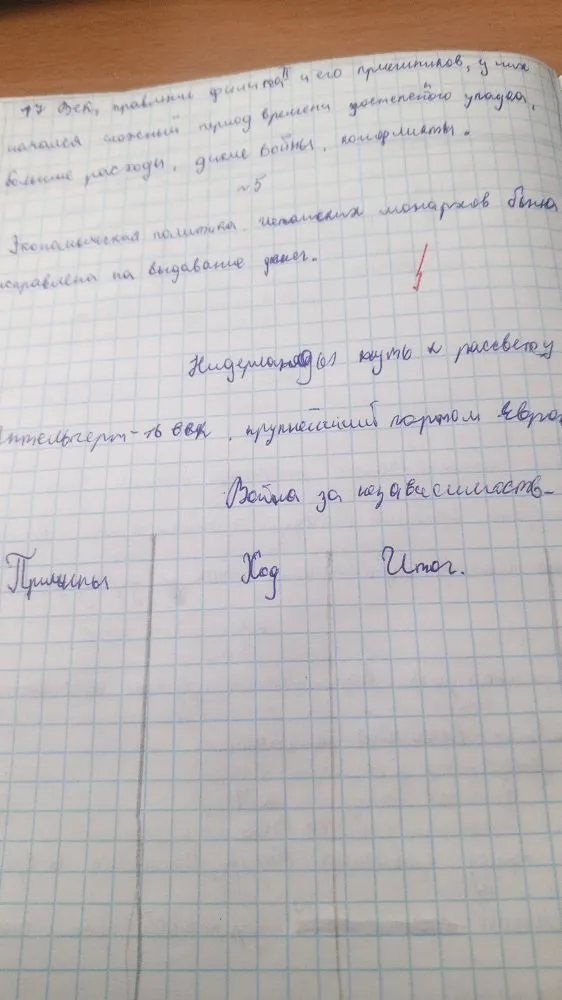 17 век, правление филиппа II и его приемников, у них
начался сложный период времени постепеного упадка,
большие расходы, дикие войны, конфликты.
№5
Экономическая политика испанских монархов была
направлена на выдавание денег.
Нидерланды путь к рассвету
16 век, крупнейший портом Европ
Война за независимость-
Причины Ход Итог.